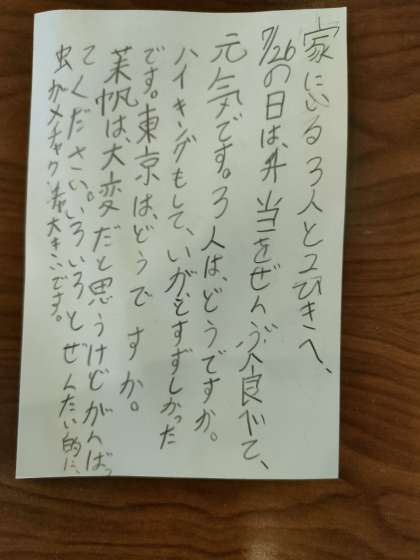 家にいる3人と2ひきへ、
7/26の日は、弁当をぜんぶ食べて、
元気です。3人は、どうですか。
ハイキングもして、いがとすずしかった
です。東京は、どうですか。
茉帆は、大変だと思うけどがんばっ
てください。いろいろとぜんたい的に、
虫がメチャクチャ大きいです。